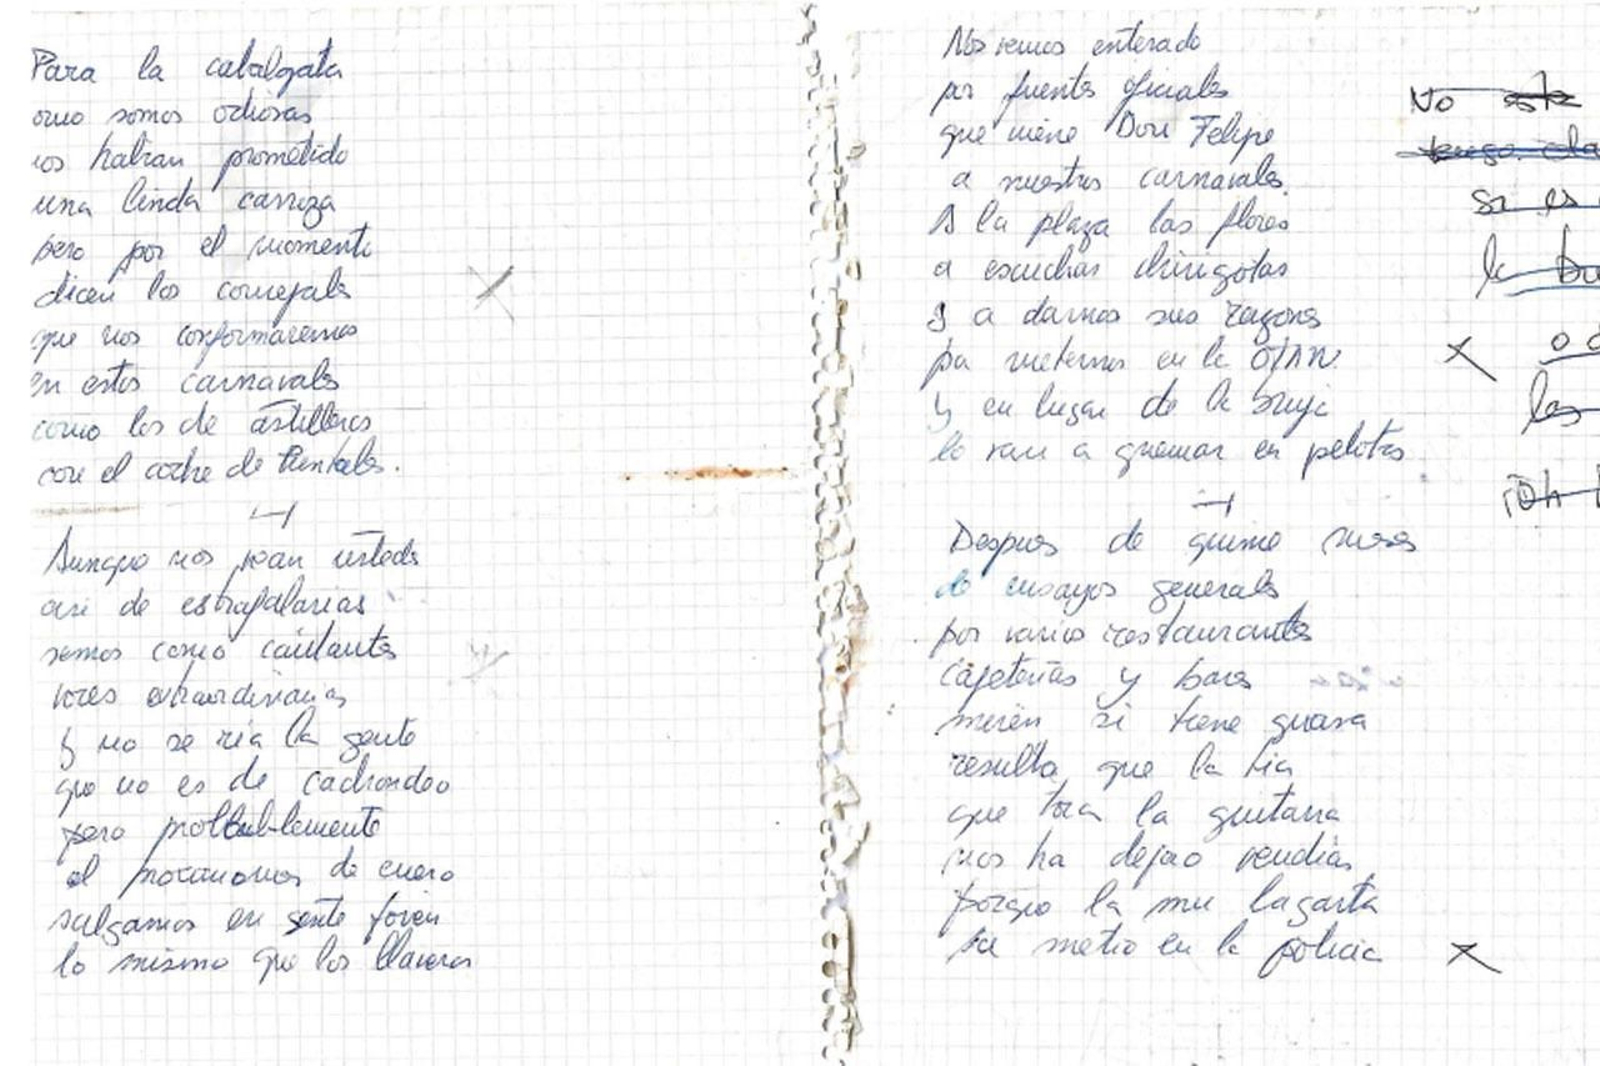 Para la cabalgata
omo somos odiosas
nos habian prometido
una linda carroza
pero por el momento
dicen los concejales
que nos conformaremos
en estos carnavales
como los de astilleros
con el coche de Puntales.
Aunque nos vean ustedes
asi de estrafalarias
semos como cantantes
voces extraordinarias
y no se ria la gente
que no es de cachondeo
pero probablemente
el proximo mes de enero
salgamos en gente joven
lo mismo que los llaveros
Nos hemos enterado
por fuentes oficiales
que viene Don Felipe
a nuestros carnavales.
A la plaza las flores
a escuchar chirigotas
y a darnos sus razones
pa meternos en la OTAN.
y en lugar de la bruja
lo van a quemar en pelotas
Despues de quince meses
de ensayos generales
por varios restaurantes
cafeterias y bares
miren si tiene guasa
resulta que la tia
que toca la guitarra
nos ha dejao vendias
porque la mu lagarta
se metio en la policia
No esta
tengo cla
si es
la bu
las
¡Oh